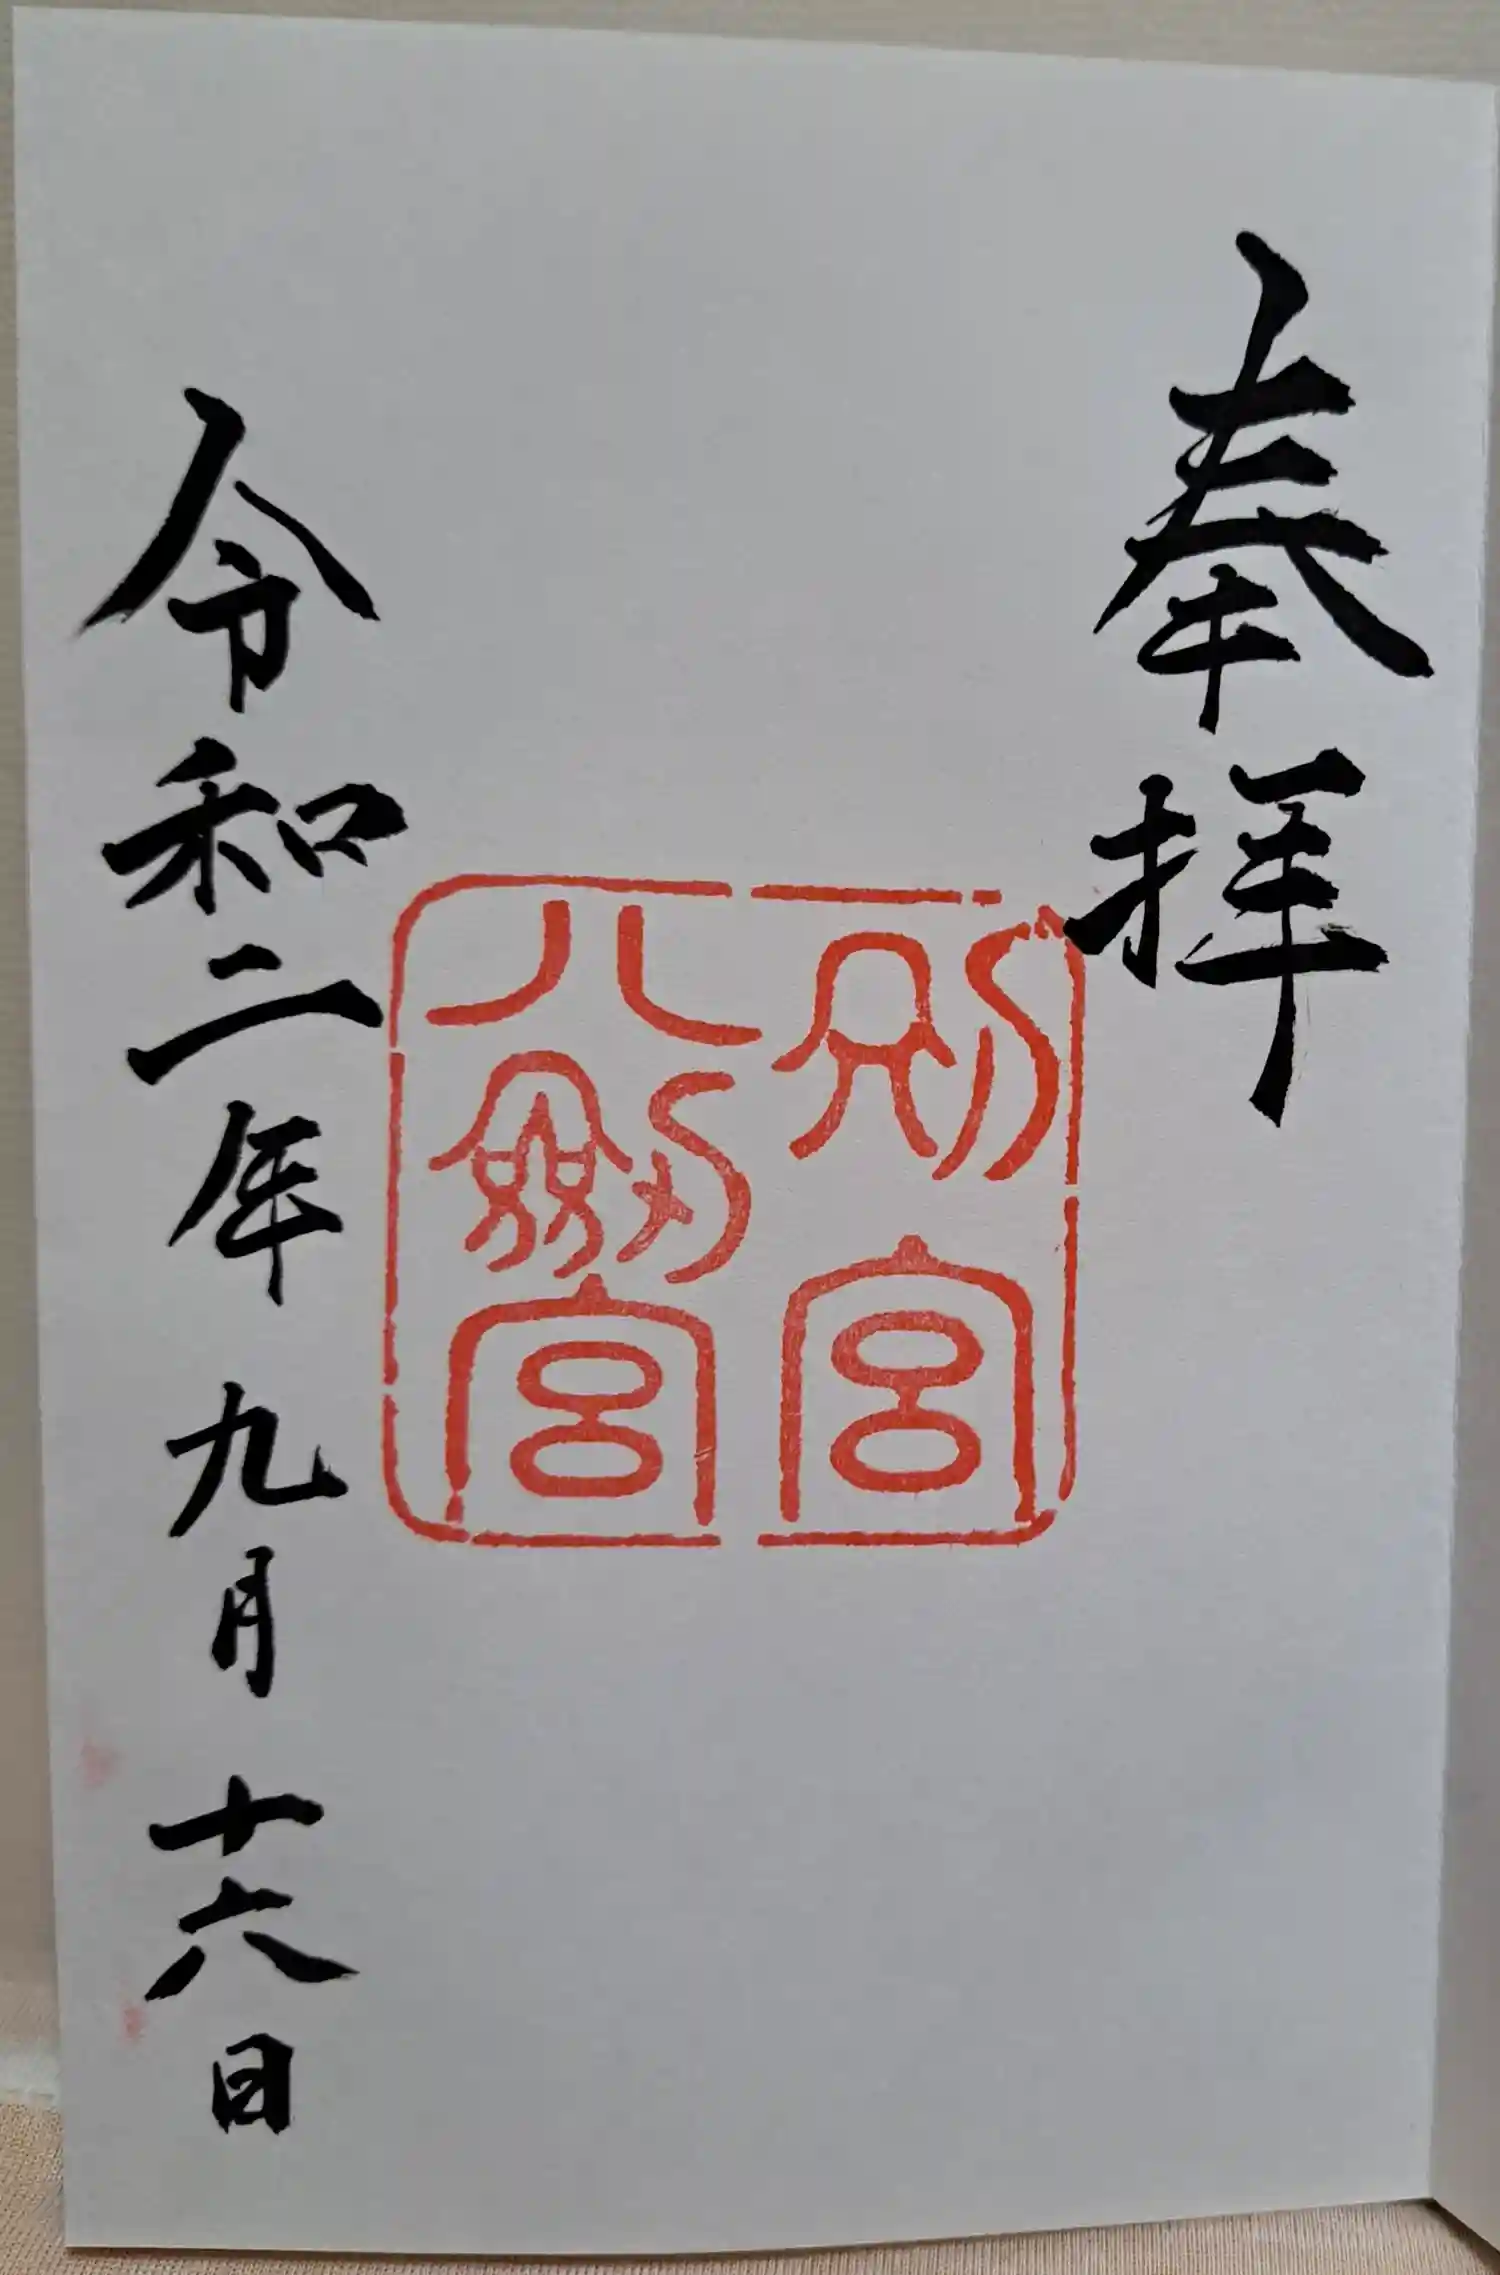 奉拝
別宮
八劔宮
令和二年九月十六日